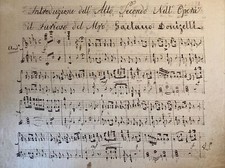 Introduzione dell' Atto Secondo Nell' Opera
il Furioso del M.ro Gaetano Donizetti